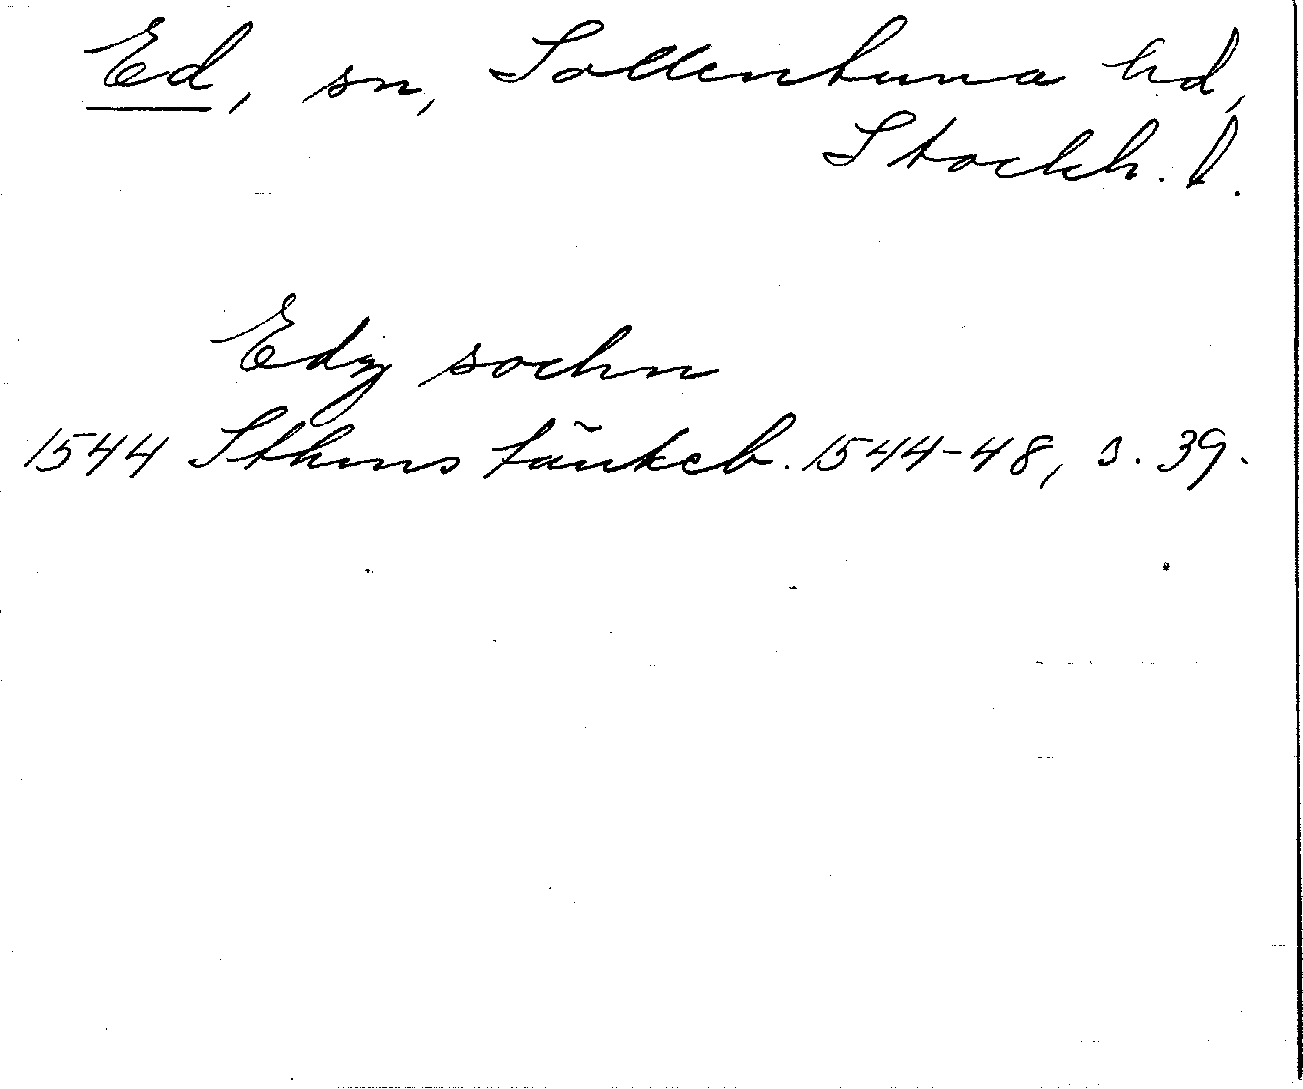 Ed, sn, Sollentuna hd,
Stockh. l.
Edz sochn
1544 Sthms tänkeb. 1544-48, s. 39.